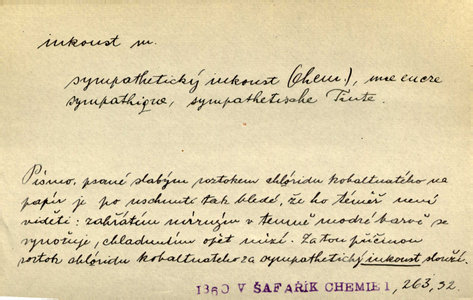 inkoust m.
sympathetický inkoust (Chem.), une encre
sympathique, sympathetische Tinte.
Písmo, psané slabým roztokem chlóridu kobaltnatého na
papír je po uschnutí tak bledé, že ho téměř není
viděti: zahřátím mírným v temně modré barvě se
vynořuje, chladnutím opět mizí. Za tou příčinou
roztok chlóridu kobaltnatého za sympathetický inkoust slouží.
1860 V ŠAFAŘÍK CHEMIE I, 263, 32.